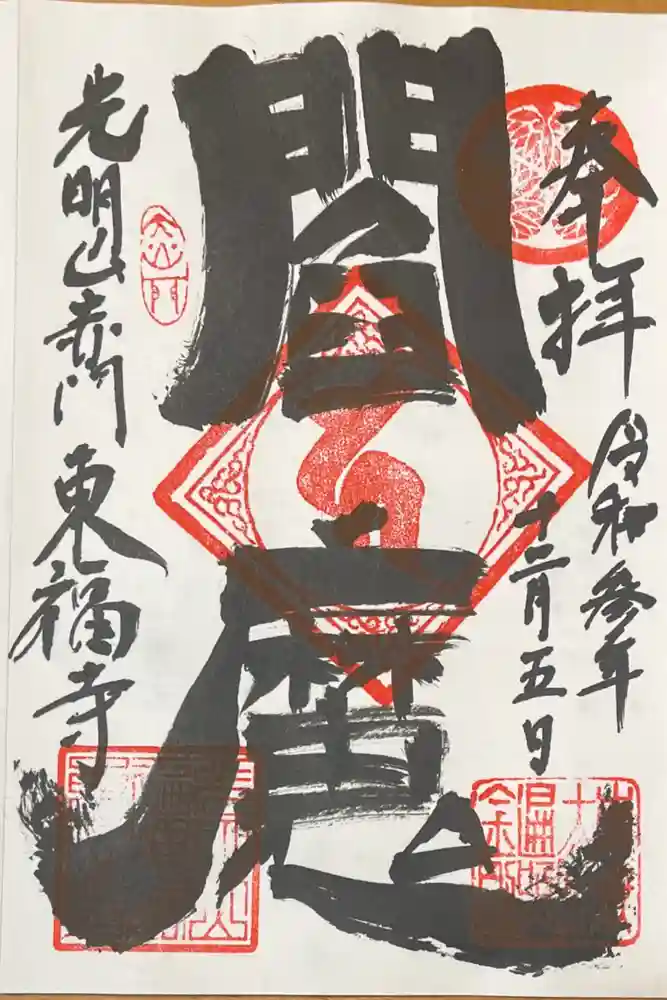 奉拝
令和参年
十二月五日
閻魔
光明山赤門 東福寺